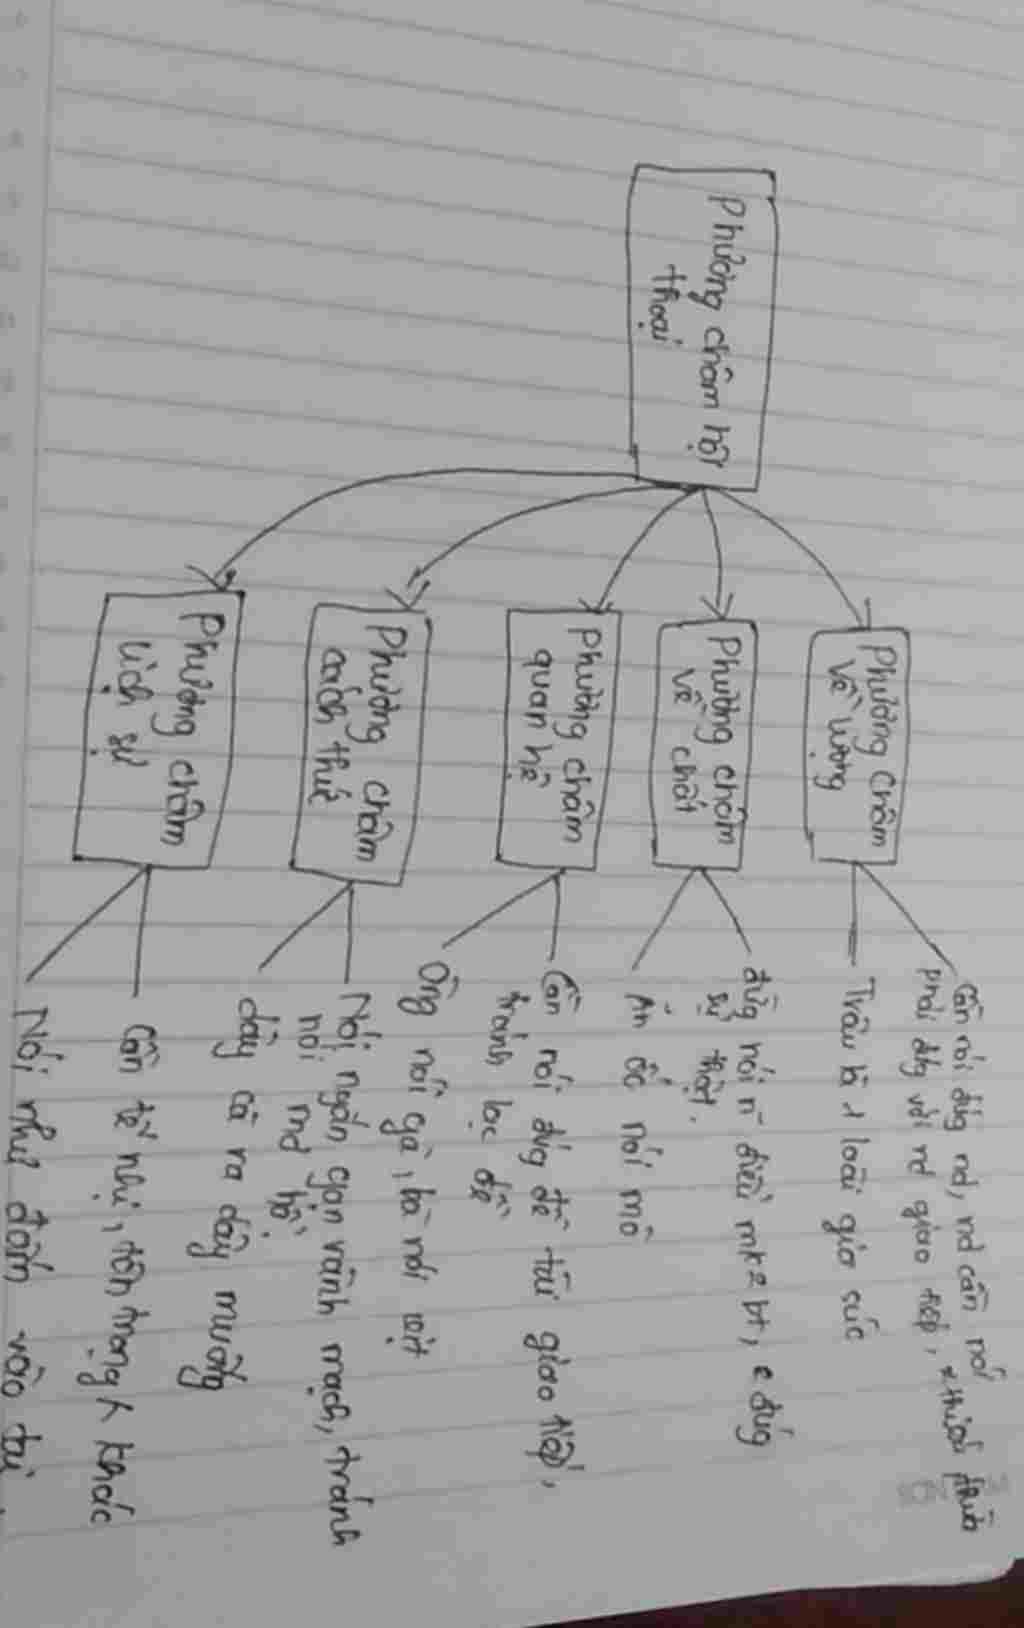 Phương châm hội
thoại
Phương châm
về lượng
Cần nói đúg nd, nd cần nói
phải đầy với nd giao tiếp, k thiếu k thừa
Trâu là 1 loài gia súc
Phương châm
về chất
đừg nói n~ điều mk k bt, k đúg
sự thật.
Ăn ốc nói mò
Phương châm
quan hệ
Cần nói đúg đề tài giao tiếp,
tránh lạc đề
Ông nói gà, bà nói vịt
Phương châm
cách thức
Nói ngắn gọn rành mạch, tránh
nói mơ hồ
dây cà ra dây muống
Phương châm
lịch sự
Cần tế nhị, tôn trọng khác
Nói như đấm vào tai